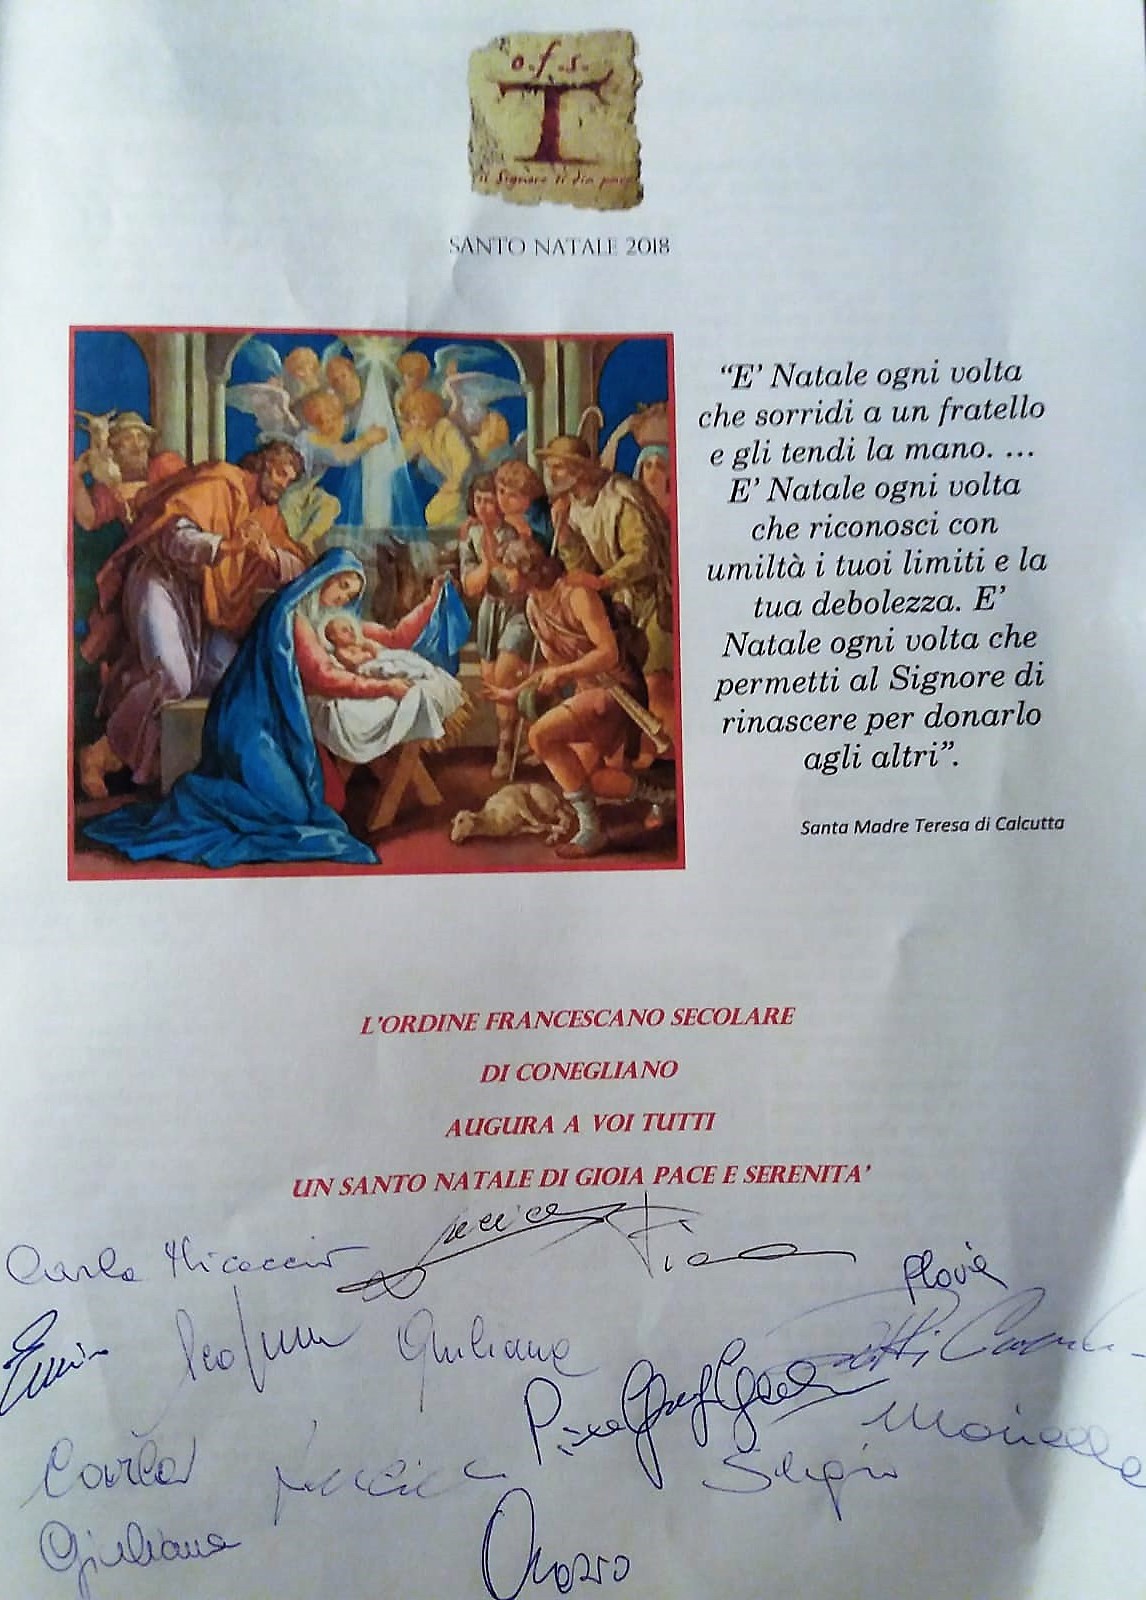 o.f.s.
T
il Signore ti dia pace
SANTO NATALE 2018
“E’ Natale ogni volta
che sorridi a un fratello
e gli tendi la mano. …
E’ Natale ogni volta
che riconosci con
umiltà i tuoi limiti e la
tua debolezza. E’
Natale ogni volta che
permetti al Signore di
rinascere per donarlo
agli altri”.
Santa Madre Teresa di Calcutta
L’ORDINE FRANCESCANO SECOLARE
DI CONEGLIANO
AUGURA A VOI TUTTI
UN SANTO NATALE DI GIOIA PACE E SERENITA’
Carla
Flavia
Giuliana
Carla
Giuliana